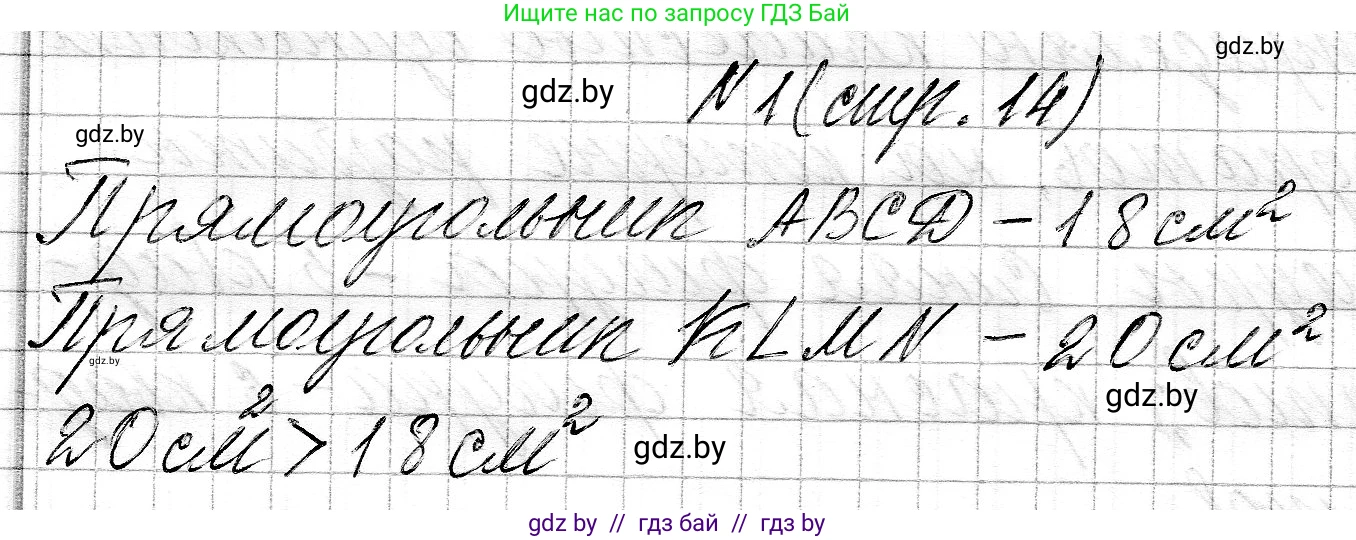 Ищите нас по запросу ГДЗ Бай
gdz.by
gdz.by
N1(стр. 14)
gdz.by
Прямоугольник ABCD – 18 см²
Прямоугольник KLMN – 20 см²
gdz.by
gdz.by
20 см² > 18 см²
gdz.by
gdz by // гдз бай // гдз by